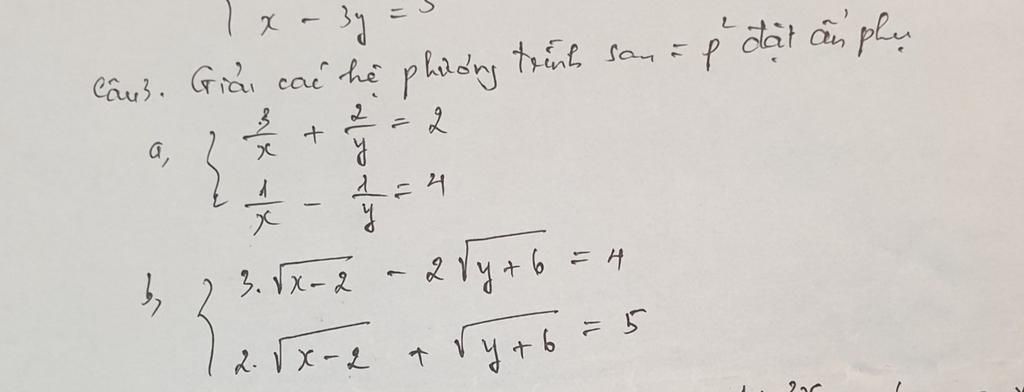 x - 3y = 5
Câu3. Giải các hệ phương trình sau = p² đặt ẩn phụ
a, { 3/x + 2/y = 2
1/x - 1/y = 4
b, { 3.√(x-2) - 2√(y+6) = 4
2.√(x-2) + √(y+6) = 5